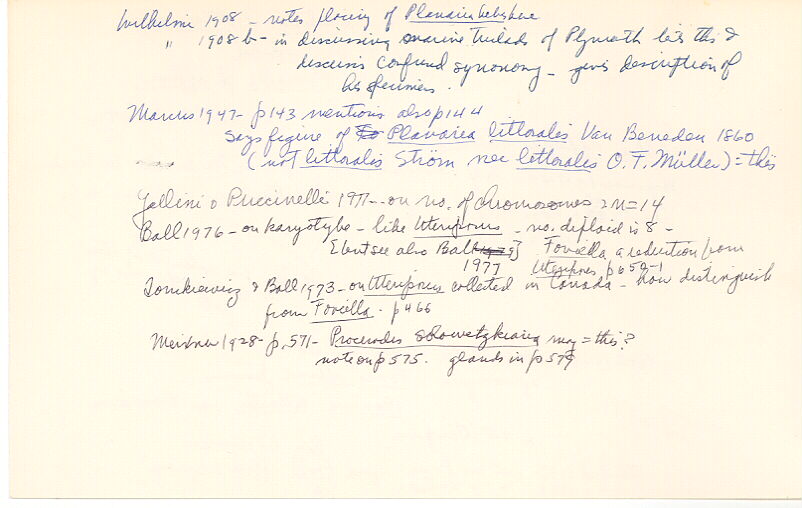 Wilhelmi 1908 - notes placing of Planaria hebes
" 1908 b - in discussing marine Triclads of Plymouth lists this &
discusses confused synonomy - gives description of
his specimens.
Marcus 1947 - p 143 mentions also p 144
says figure of Planaria littoralis Van Beneden 1860
(not littoralis Ström nec littoralis O. F. Müller) = this
Galleni & Puccinelli 1977 - on no. of chromosomes 2n=14
Ball 1976 - on karyotype - like Uteriporus - no. diploid is 8 -
[but see also Ball 1977] Foviella a reduction from
Uteriporus, p 659-1
Tomkiewicz & Ball 1973 - on Uteriporus collected in Canada - how distinguish
from Foviella - p 466
Meixner 1928 - p. 571 - Procerodes solowetzkiana may = this?
note on p 575. glands in p 579